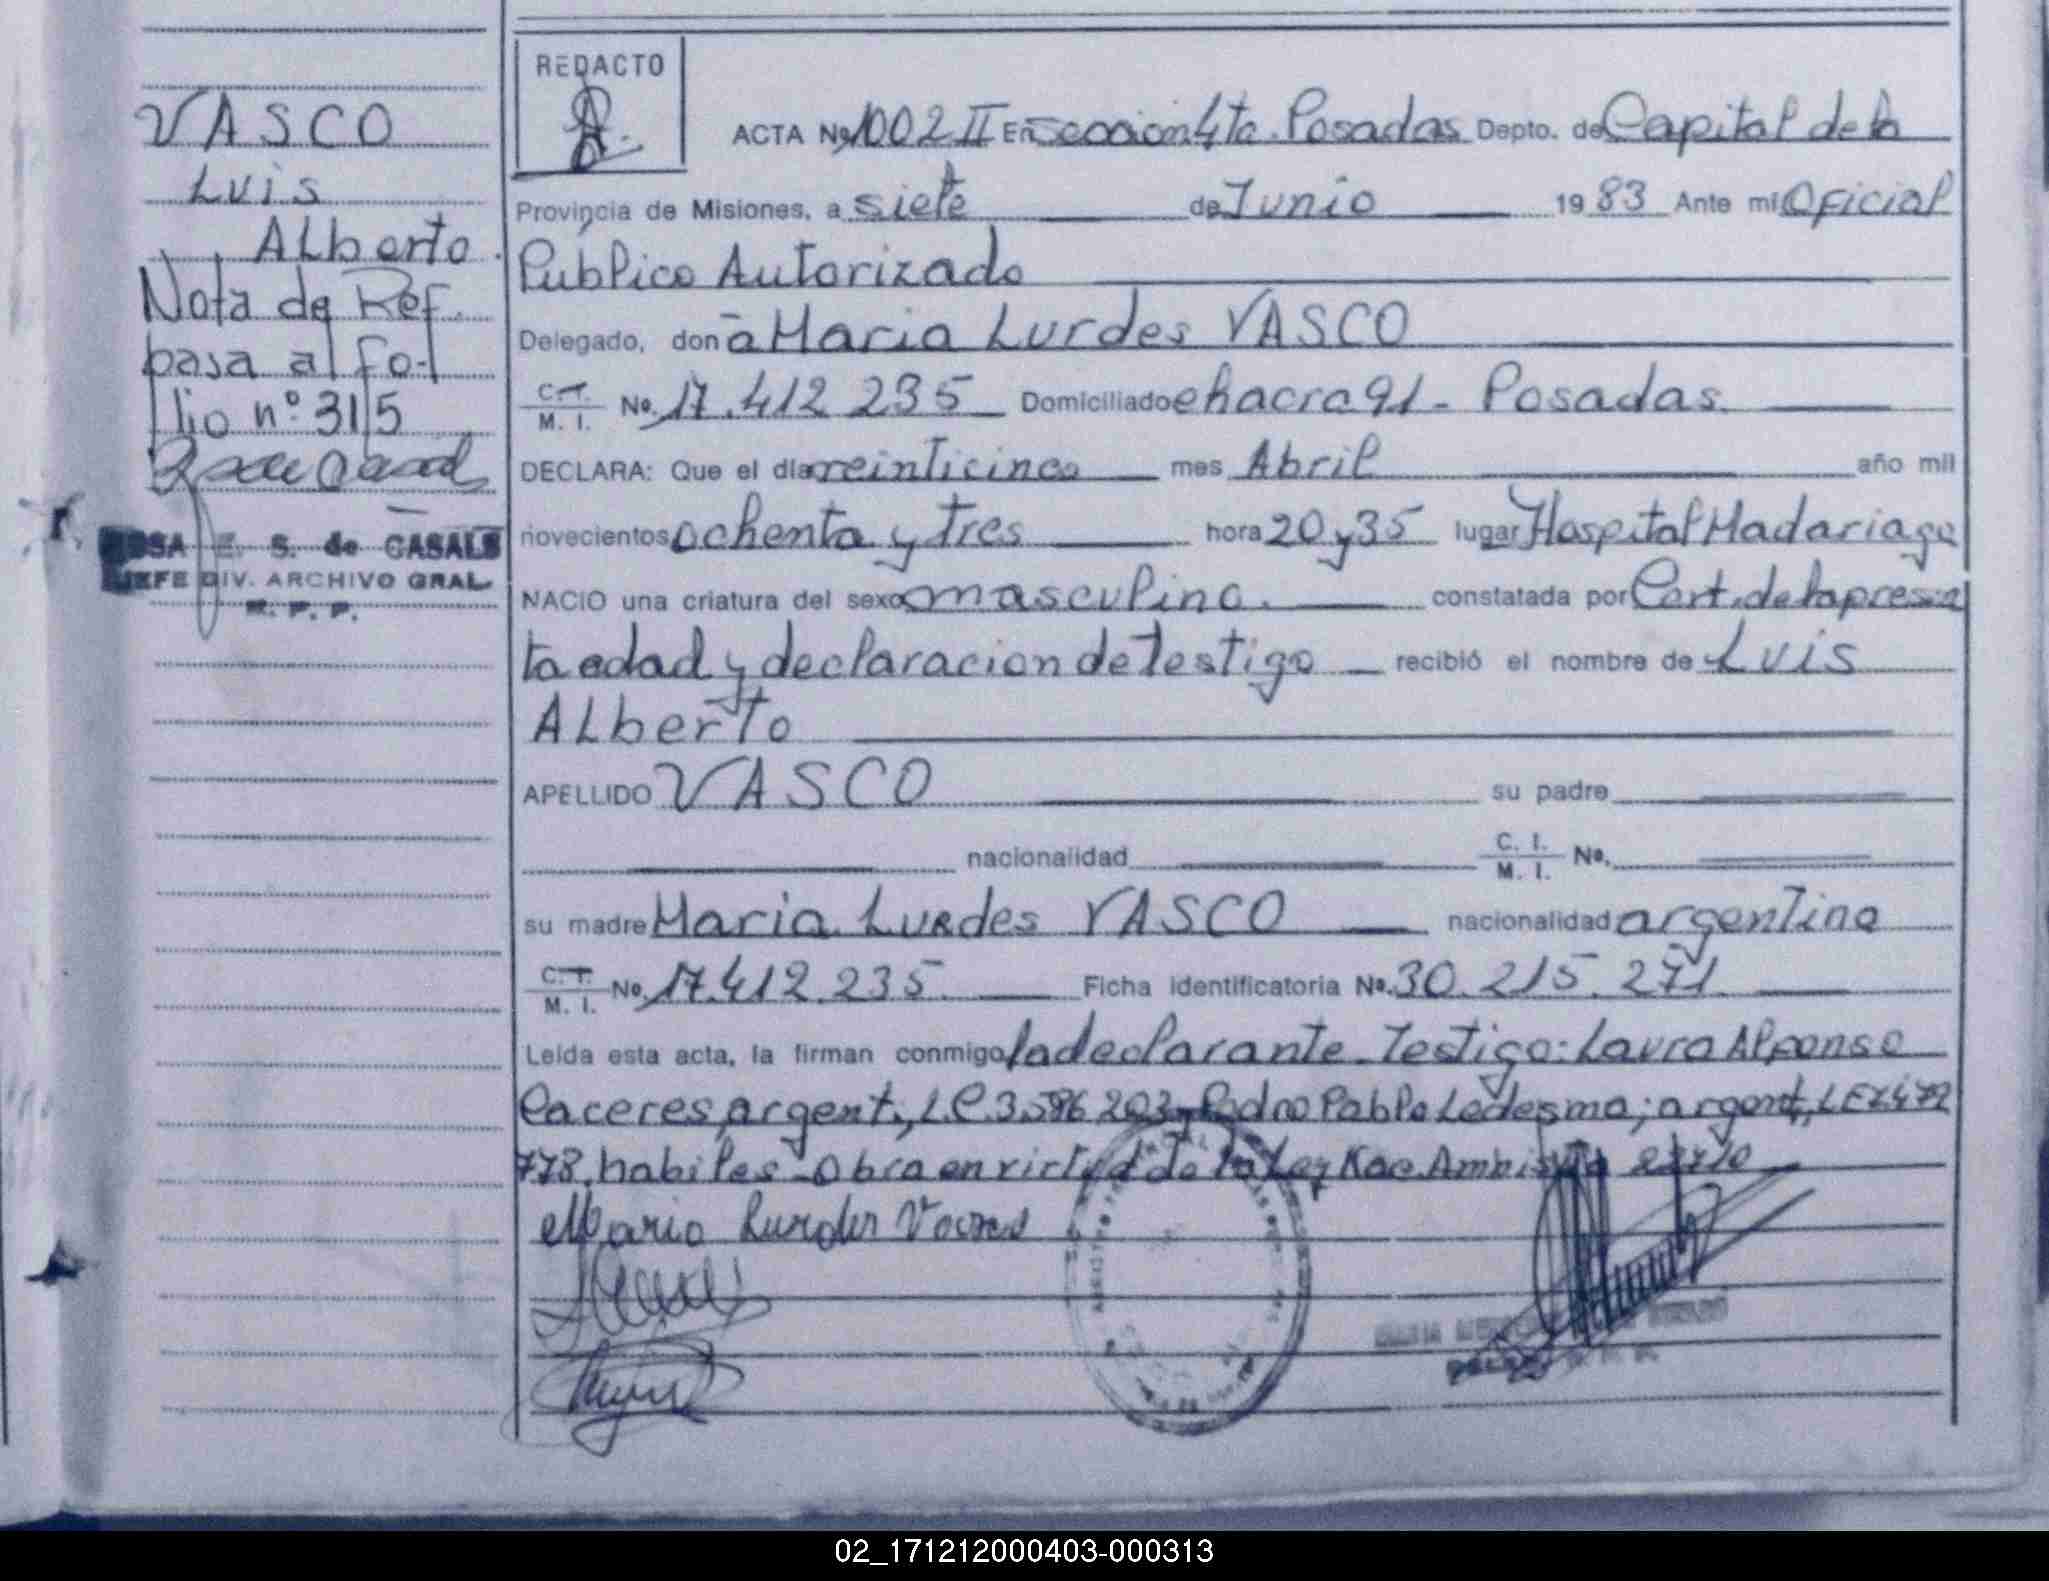 VASCO
Luis
Alberto
Nota de Ref.
pasa al fo-
lio nº 315
ROSA E. S. de CASALS
JEFE DIV. ARCHIVO GRAL.
R. P. P.
REDACTO
ACTA Nº 1002 II En seccion 4ta. Posadas Depto. de Capital de la
Provincia de Misiones, a siete de Junio 1983 Ante mi Oficial
Publico Autorizado
Delegado, don a Maria Lurdes VASCO
C. I. M. I. No. 17.412 235 Domiciliado chacra 91 - Posadas.
DECLARA: Que el día veinticinco mes Abril año mil
novecientos ochenta y tres hora 20 y 35 lugar Hospital Madariaga
NACIO una criatura del sexo masculino. constatada por Cert. de la presen
ta edad y declaracion de testigo recibió el nombre de Luis
Alberto
APELLIDO VASCO su padre
nacionalidad C. I. M. I. No.
su madre Maria Lurdes VASCO nacionalidad argentina
C. I. M. I. No. 17.412.235. Ficha identificatoria No. 30.215.271.
Leida esta acta, la firman conmigo la declarante. Testigo: Laura Alfonso
Caceres, argent., L.C. 3.596 203 y Pedro Pablo Ledesma; argent., LE 7.472
778, habiles - Obra en virtud de la Ley
Maria Lurdes
02_171212000403-000313